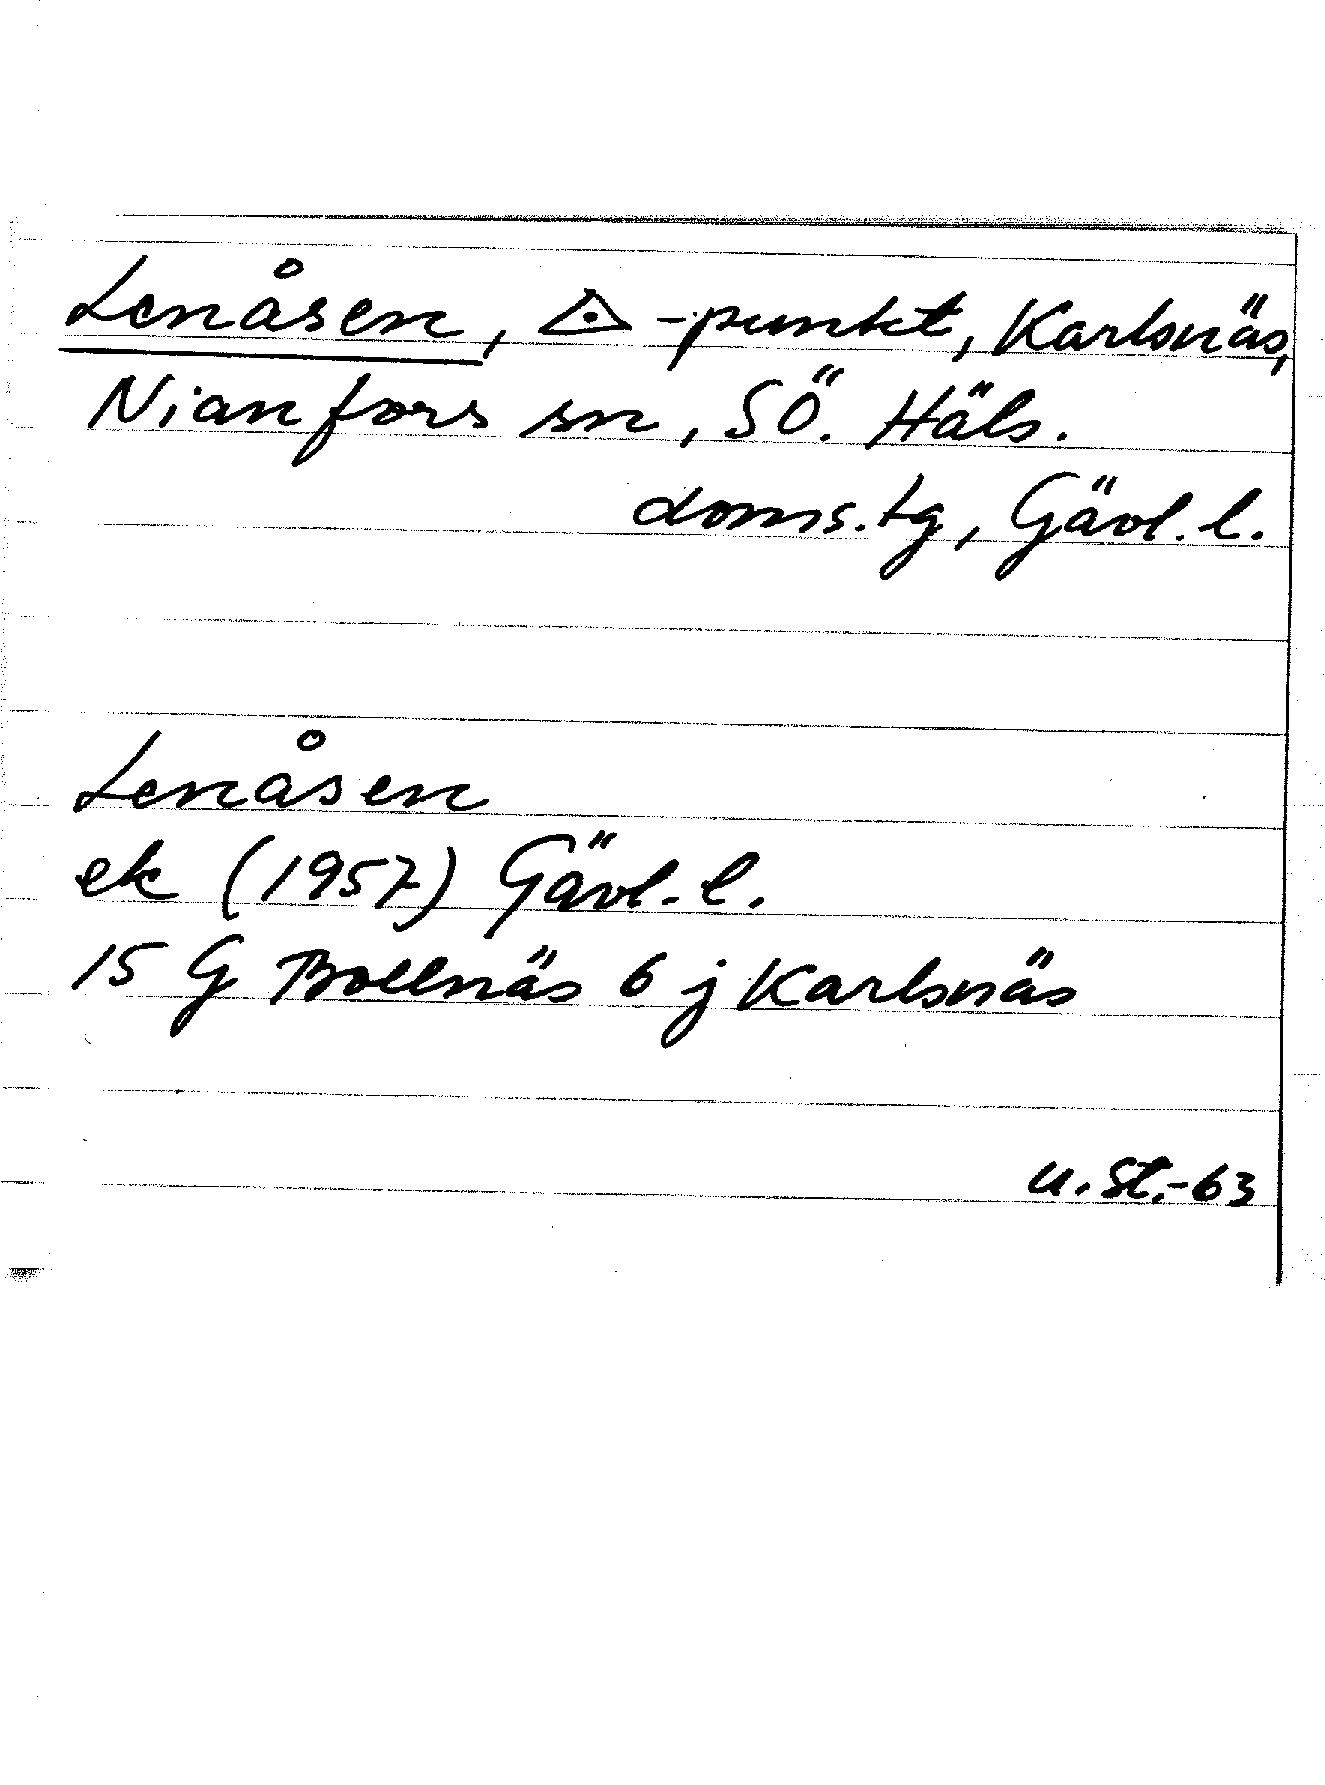 Lenåsen, ⟁-punkt, Karlsnäs,
Nianfors sn, SÖ. Häls.
doms.tg, Gävl.l.
Lenåsen
ek (1957) Gävl.l.
15 G Bollnäs 6 j Karlsnäs
U.St.-63